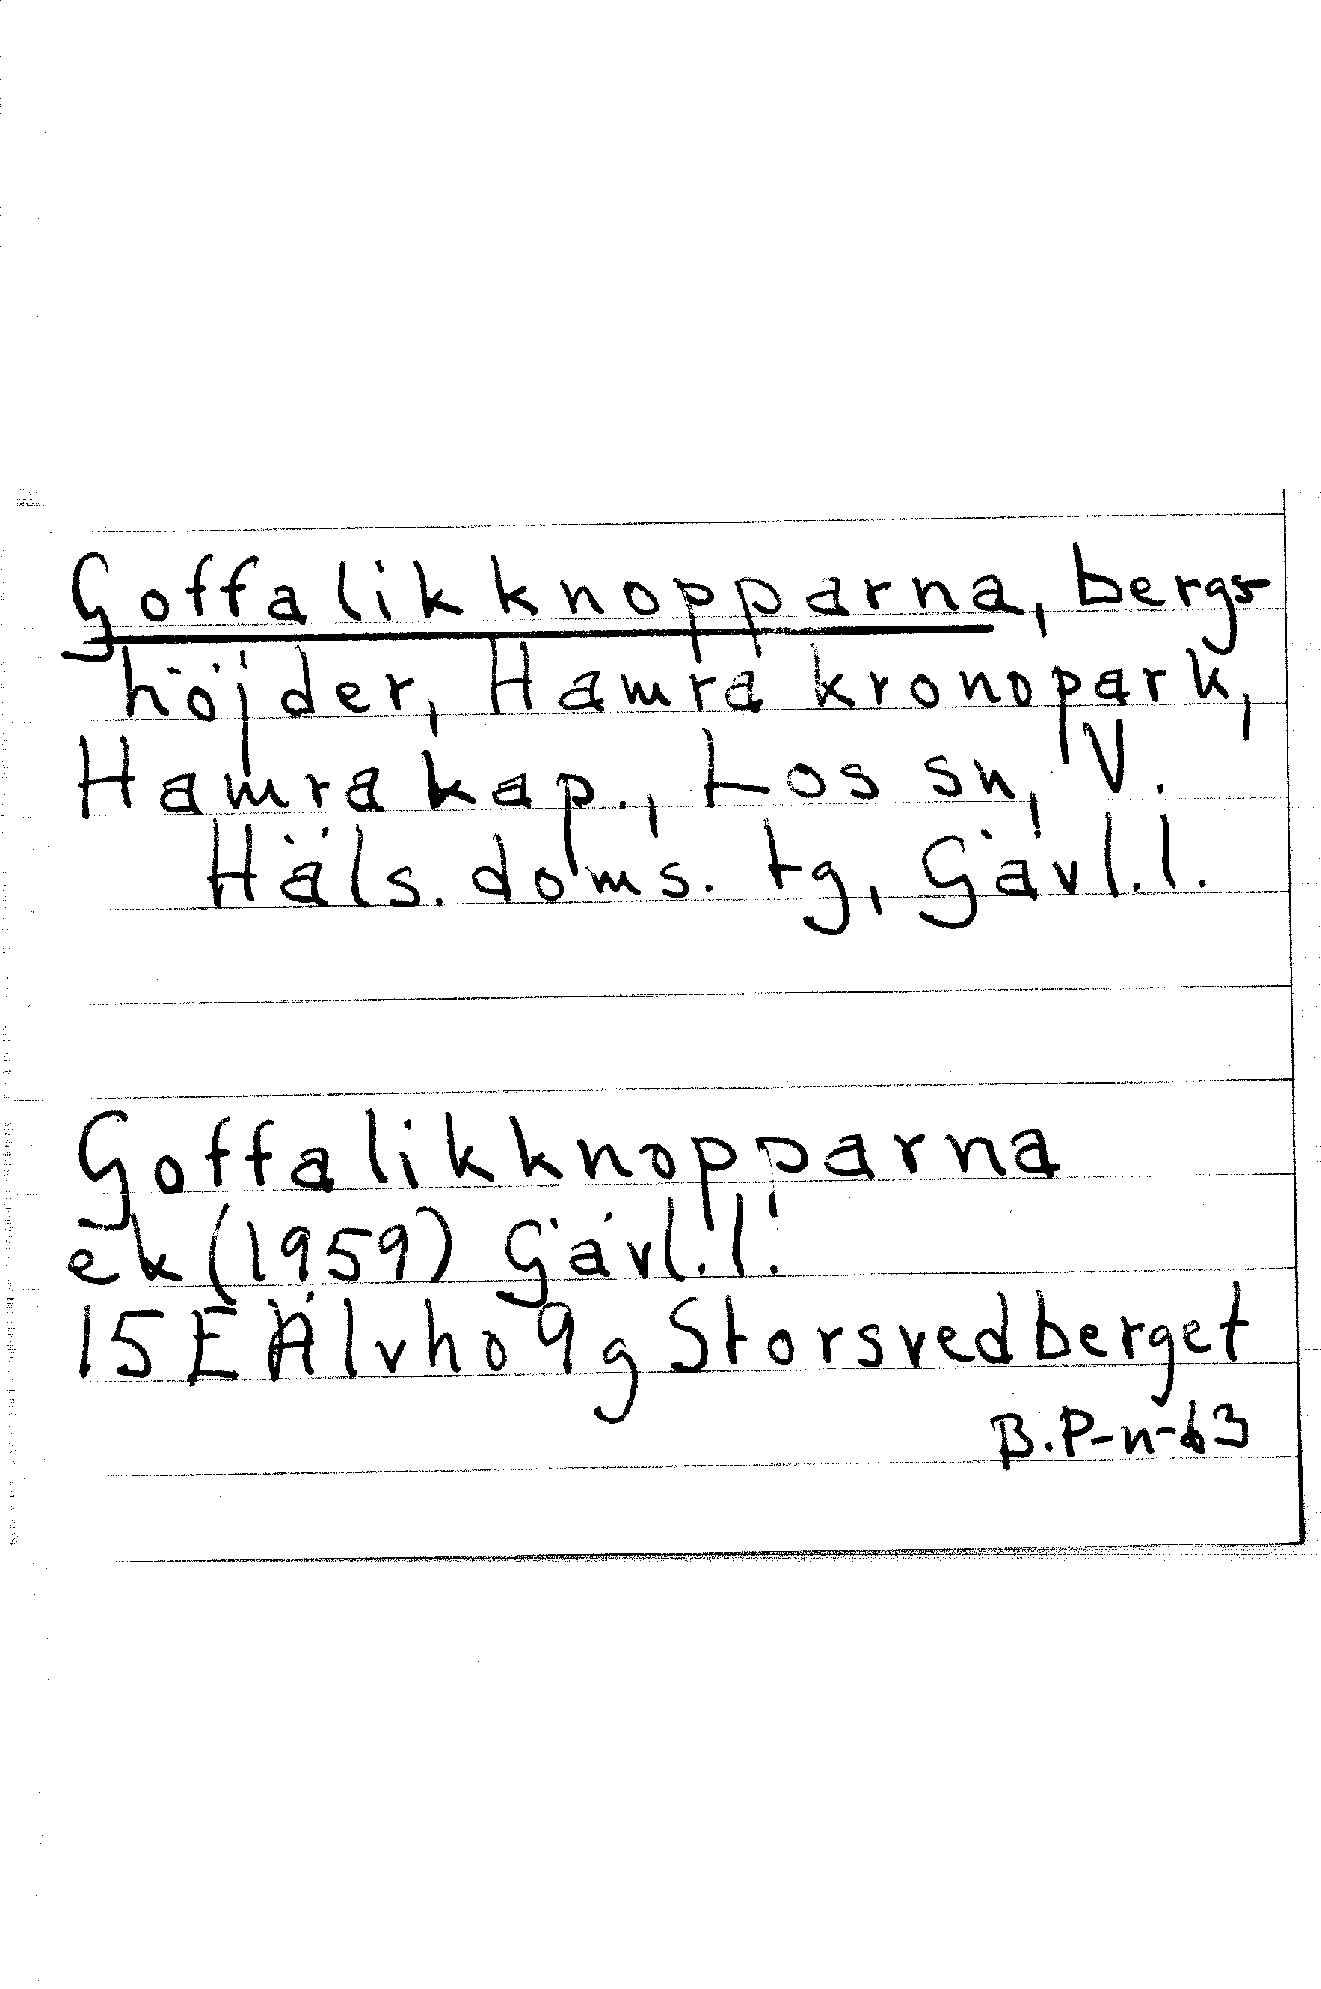 Goffalikknopparna, bergs-
höjder, Hamra kronopark,
Hamra kap., Los sn, V.
Häls. doms. tg, Gävl.l.
Goffalikknopparna
ek (1959) Gävl.l.
15E Älvho 9g Storsvedberget
B.P-n-63